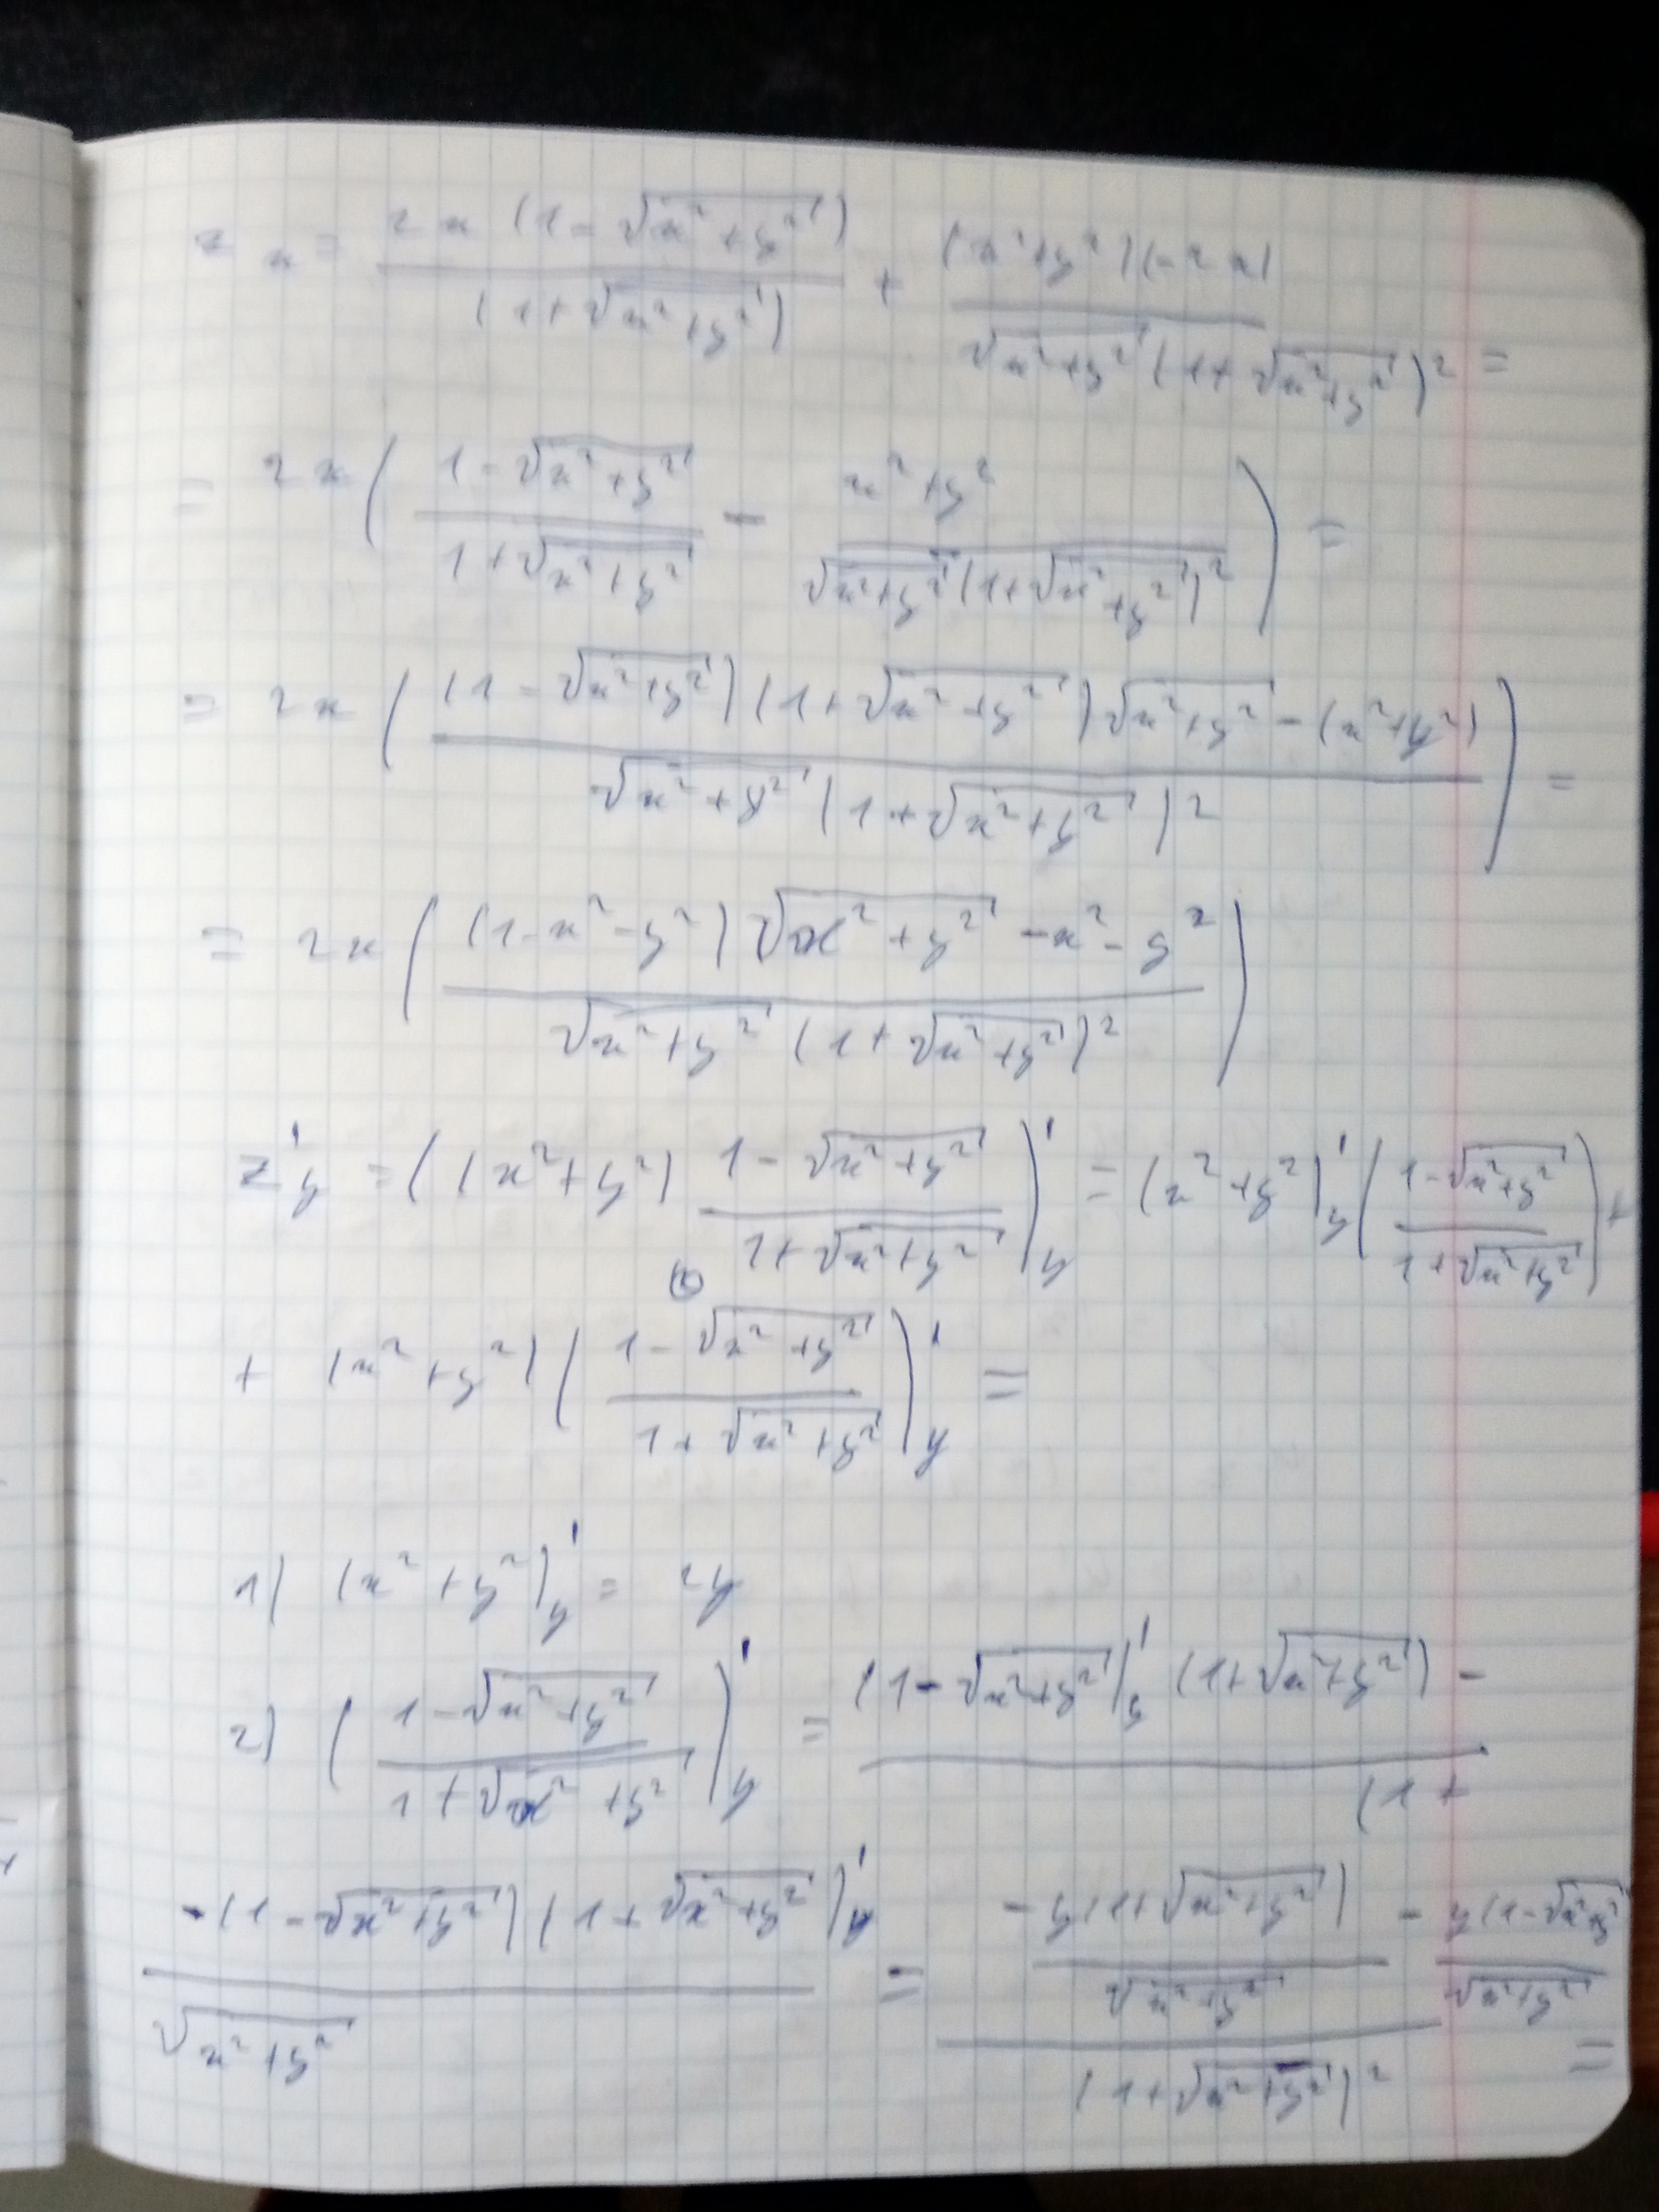 z x = 2x (1 - √(x² + y²)) / (1 + √(x² + y²)) + (x² + y²)(-2x) / √(x² + y²) (1 + √(x² + y²))² =
= 2x ( (1 - √(x² + y²)) / (1 + √(x² + y²)) - (x² + y²) / √(x² + y²) (1 + √(x² + y²))² ) =
= 2x ( (1 - √(x² + y²)) (1 + √(x² + y²)) √(x² + y²) - (x² + y²) / √(x² + y²) (1 + √(x² + y²))² ) =
= 2x ( (1 - x² - y²) √(x² + y²) - x² - y² / √(x² + y²) (1 + √(x² + y²))² )
z'y = ( (x² + y²) (1 - √(x² + y²)) / (1 + √(x² + y²)) )'y = (x² + y²)'y ( (1 - √(x² + y²)) / (1 + √(x² + y²)) ) +
+ (x² + y²) ( (1 - √(x² + y²)) / (1 + √(x² + y²)) )'y =
1) (x² + y²)'y = 2y
2) ( (1 - √(x² + y²)) / (1 + √(x² + y²)) )'y = (1 - √(x² + y²))'y (1 + √(x² + y²)) - / (1 +
- (1 - √(x² + y²)) (1 + √(x² + y²))'y / √(x² + y²) = ( -y (1 + √(x² + y²)) / √(x² + y²) - y (1 - √(x² + y²)) / √(x² + y²) ) / (1 + √(x² + y²))² =